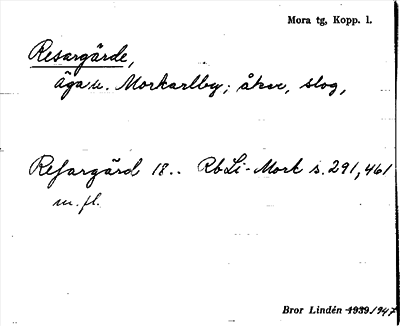 Mora tg, Kopp. l.
Resargärde,
Äga u. Morkarlby; åker, slog,
Resargärd 18.. Rb Li-Mork s. 291, 461
m. fl.
Bror Lindén 1939/1947